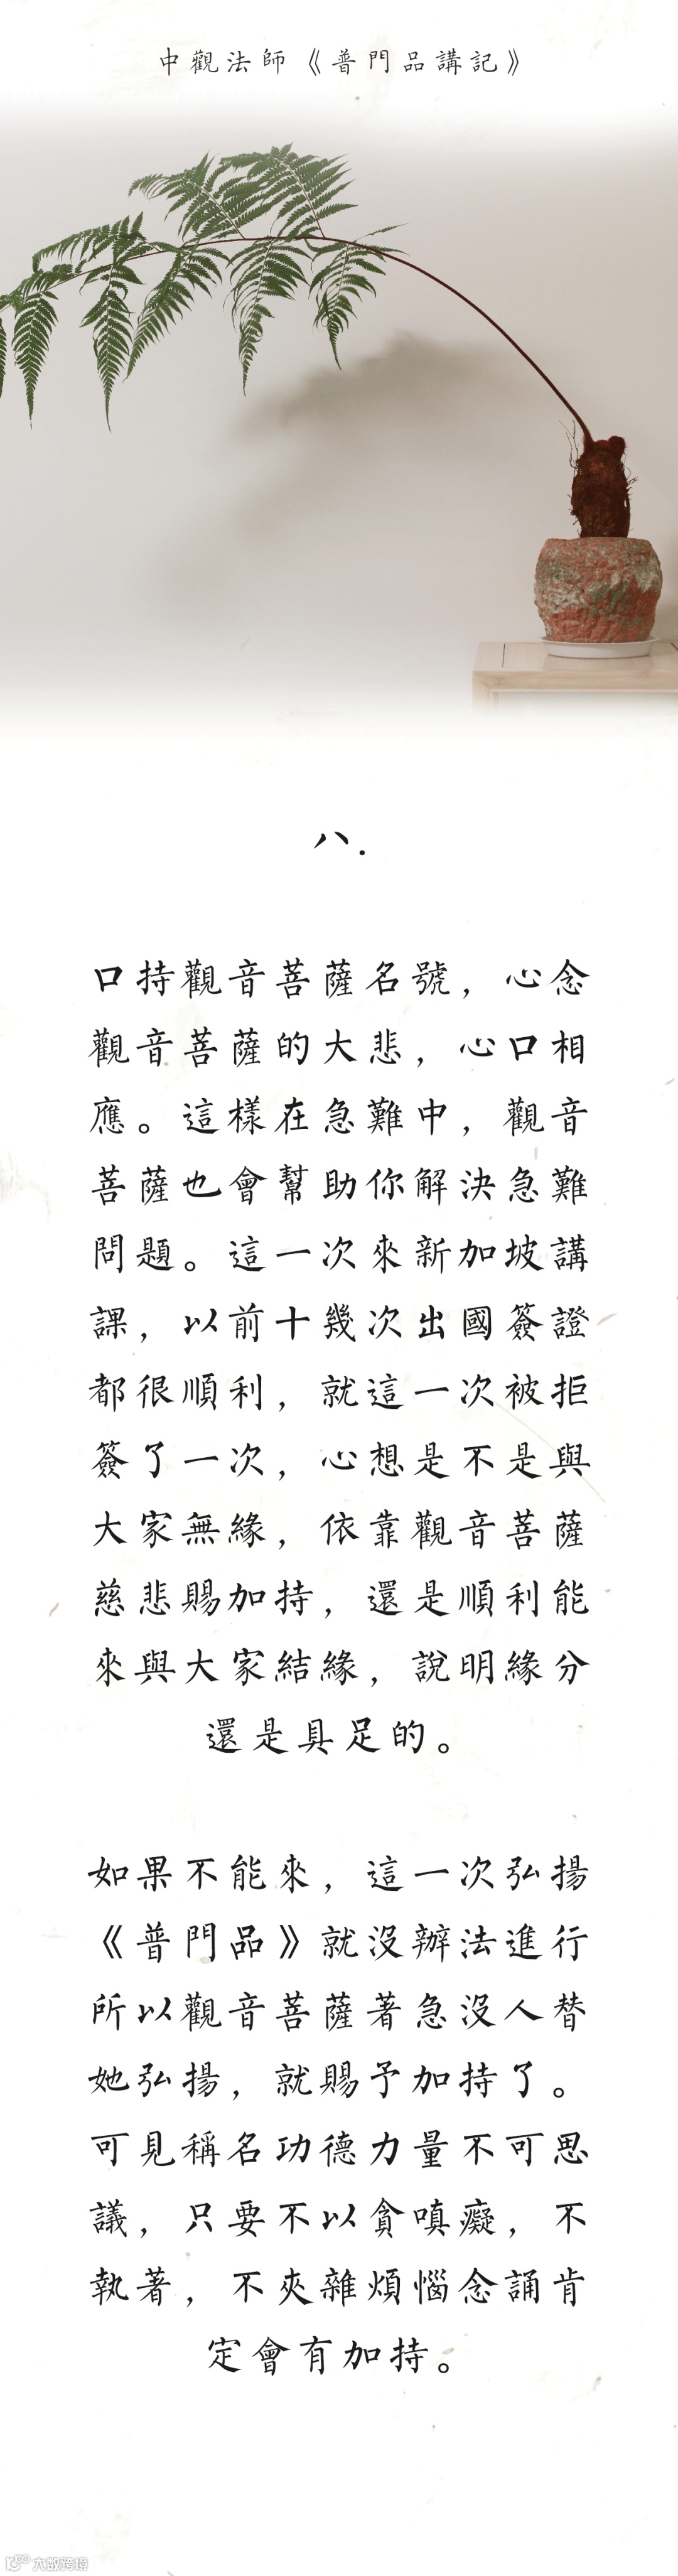 中觀法師《普門品講記》
八.
口持觀音菩薩名號，心念
觀音菩薩的大悲，心口相
應。這樣在急難中，觀音
菩薩也會幫助你解決急難
問題。這一次來新加坡講
課，以前十幾次出國簽證
都很順利，就這一次被拒
簽了一次，心想是不是與
大家無緣，依靠觀音菩薩
慈悲賜加持，還是順利能
來與大家結緣，說明緣分
還是具足的。
如果不能來，這一次弘揚
《普門品》就沒辦法進行
所以觀音菩薩著急沒人替
她弘揚，就賜予加持了。
可見稱名功德力量不可思
議，只要不以貪嗔癡，不
執著，不夾雜煩惱念誦肯
定會有加持。
大数跨境